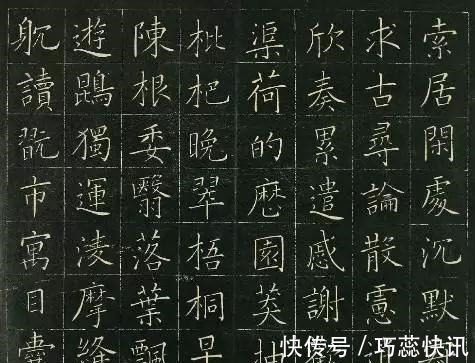 索居閑處沉默
求古尋論散慮
欣奏累遣慼謝
渠荷的歷園莽抽
枇杷晚翠梧桐早
陳根委翳落葉飄
遊鵾獨運凌摩絳
躭讀翫市寓目囊
快传号 / 巧蕊快讯